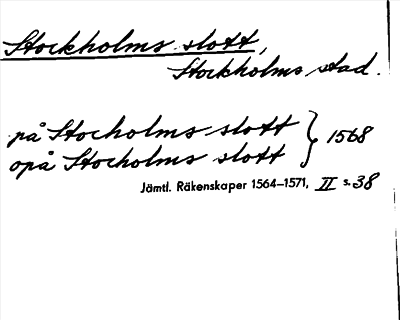 Stockholms slott,
Stockholms stad.
på Stocholms slott } 1568
opå Stocholms slott
Jämtl. Räkenskaper 1564–1571, II s. 38